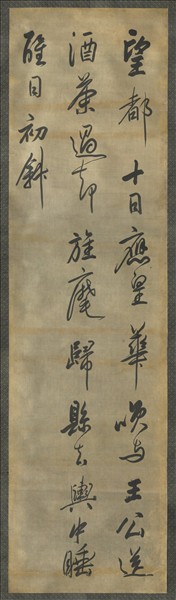 望都十日應皇華喚与王公送
酒茶過却旌麾歸縣去輿中睡
醒日初斜